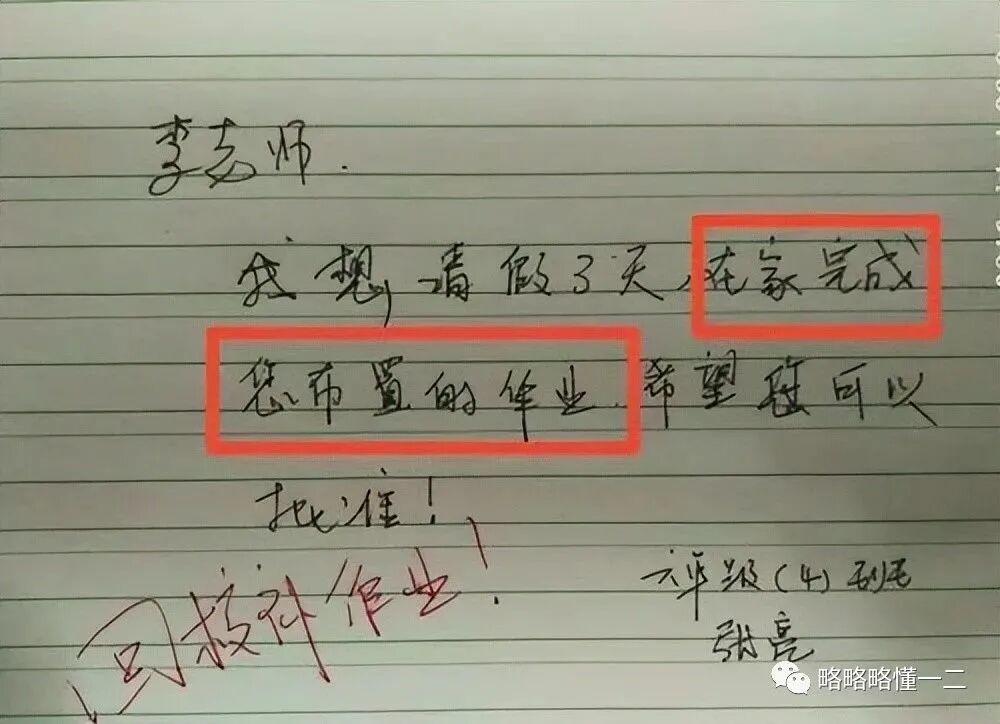 李老师.
我想,请假3天,在家完成
您布置的作业.希望您可以
批准!
六年级(4)班
张亮
回校补作业!
略略略懂一二